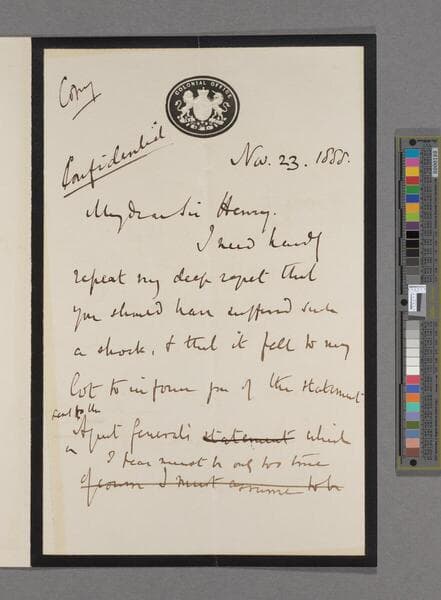 Copy
COLONIAL OFFICE
Confidential
Nov. 23. 1888.
My dear Sir Henry.
I need hardly
repeat my deep regret that
you should have suffered such
a shock, & that it fell to my
lot to inform you of the statement
sent to the
Agent General's statement which
I fear must be only too true
of course I must assume to be